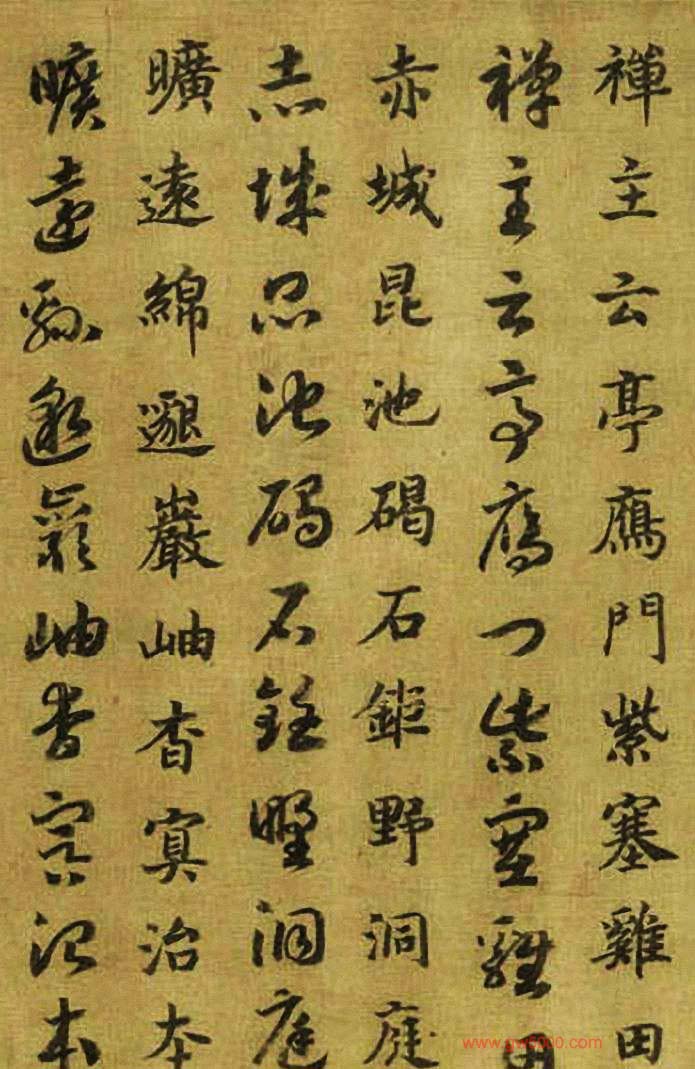 禪主云亭鴈門紫塞雞田
禪主云亭鴈門紫塞雞田
赤城昆池碣石鉅野洞庭
赤城昆池碣石鉅野洞庭
曠遠綿邈巖岫杳冥治本
曠遠綿邈巖岫杳冥治本